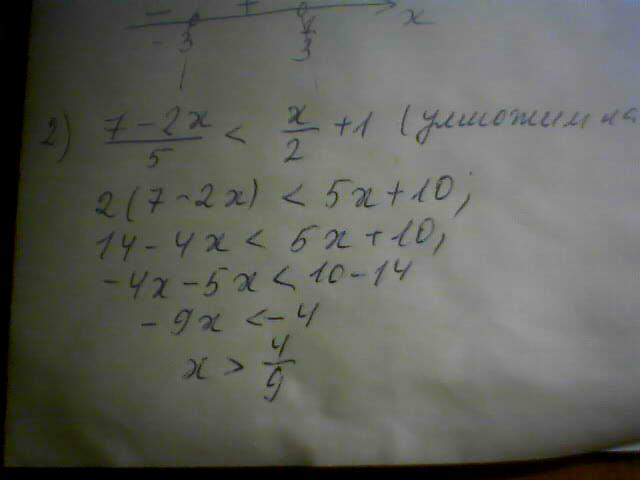 - + x
- 3 4/3
2) (7-2x)/5 < x/2 +1 (умножим на
2(7-2x) < 5x+10;
14-4x < 5x+10;
-4x-5x < 10-14
-9x < -4
x > 4/9